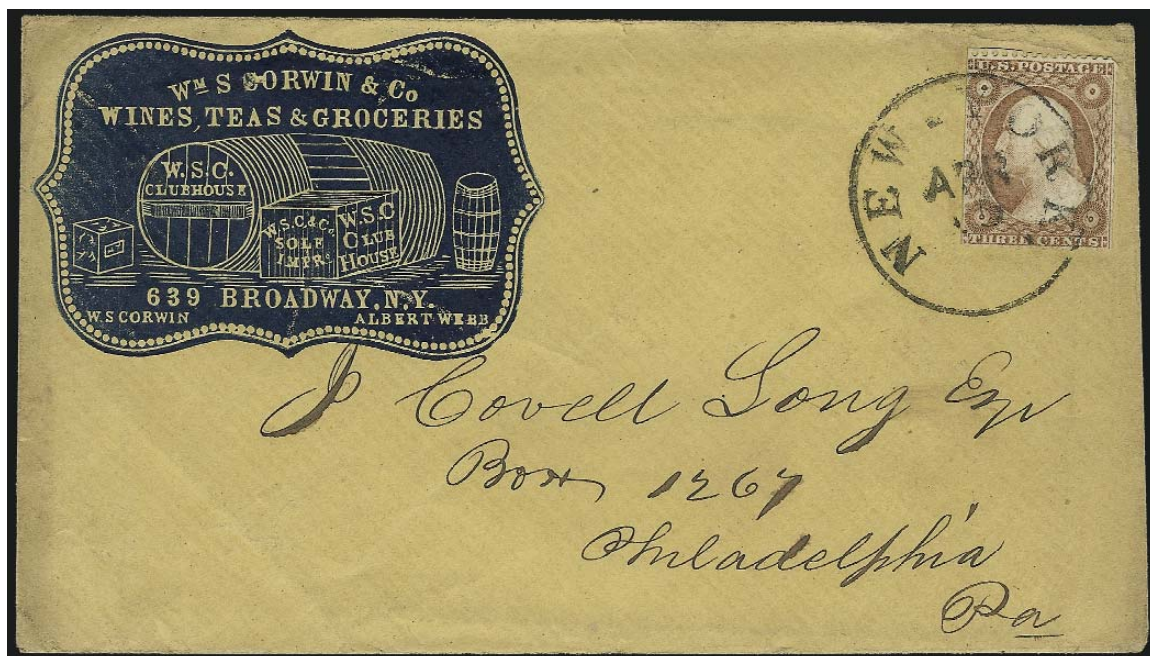 Wᴹ S CORWIN & Co
WINES, TEAS & GROCERIES
W.S.C.
CLUBHOUSE
W.S.C & Co.
SOLE
IMPRS
W.S.C
CLUB
HOUSE
639 BROADWAY, N.Y.
W.S CORWIN
ALBERT WEBB
U.S. POSTAGE
THREE CENTS
NEW-YORK
APR
J Covell Long Esq
Box 1267
Philadelphia
Pa